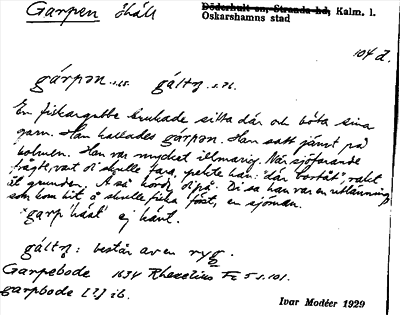 Garpen häll
Döderhult sn, Stranda hd, Kalm. l.
Oskarshamns stad
104 d.
gárpən s.25. gáltŋ s.26.
En fiskargubbe brukade sitta där och böta sina
garn. Han kallades gárpən. Han satt jämt på
holmen. Han var mycket illmarig. När sjöfarande
frågte, vart di skulle fara, pekte han: "där bortåt", rakt
åt grunden. Å så körde di på. Di sa han var en utlänning
som kom hit å skulle fiska först, en sjöman.
"garp 'häät" ej känt.
gáltŋ: består av en rygg.
Garpebode 1634 Rhezelius Fc 5 s. 101.
garpbode [?] ib.
Ivar Modéer 1929